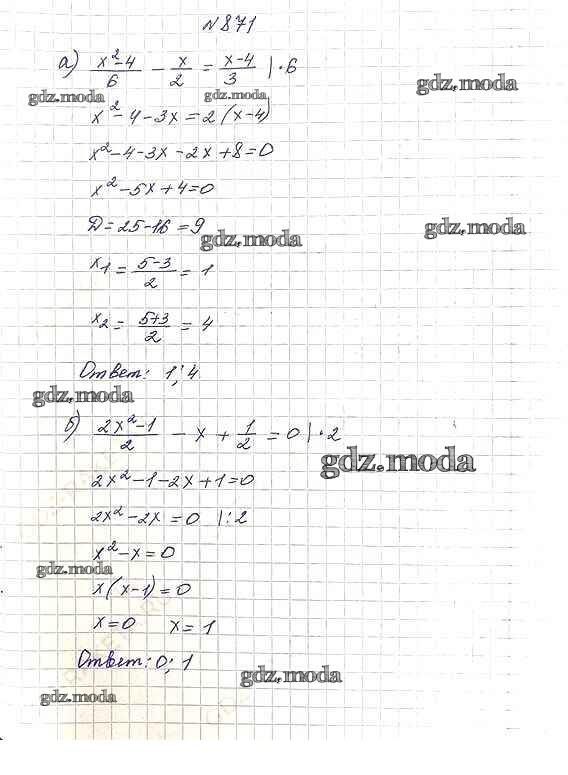 №871
а) (x²-4)/6 - x/2 = (x-4)/3 |·6
gdz.moda gdz.moda gdz.moda
x²-4-3x=2(x-4)
x²-4-3x-2x+8=0
x²-5x+4=0
D=25-16=9
gdz.moda gdz.moda
x₁ = (5-3)/2 = 1
x₂ = (5+3)/2 = 4
Ответ: 1; 4
gdz.moda
б) (2x²-1)/2 - x + 1/2 = 0 |·2
gdz.moda
2x²-1-2x+1=0
2x²-2x=0 |:2
x²-x=0
gdz.moda
x(x-1)=0
x=0 x=1
Ответ: 0; 1
gdz.moda
gdz.moda